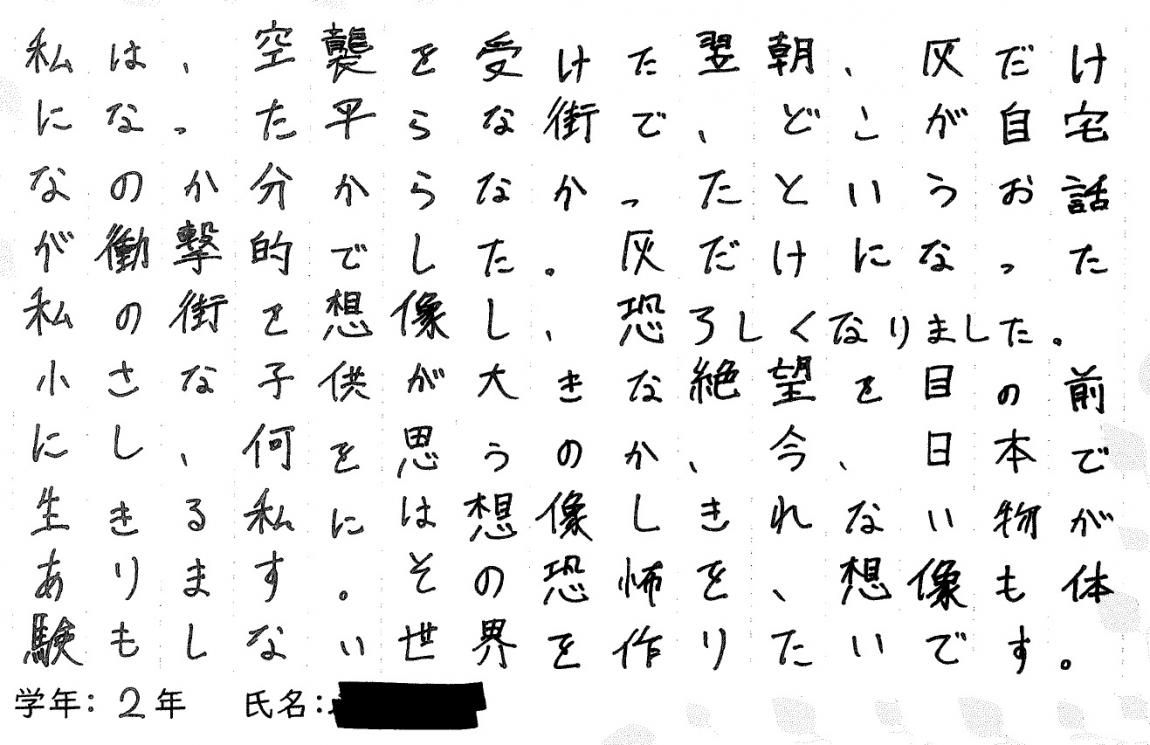 私は、空襲を受けた翌朝、灰だけ
になった平らな街で、どこが自宅
なのか分からなかったというお話
が衝撃的でした。灰だけになった
私の街を想像し、恐ろしくなりました。
小さな子供が大きな絶望を目の前
にし、何を思うのか、今、日本で
生きる私には想像しきれない物が
あります。その恐怖を、想像も体
験もしない世界を作りたいです。
学年：2年　氏名：